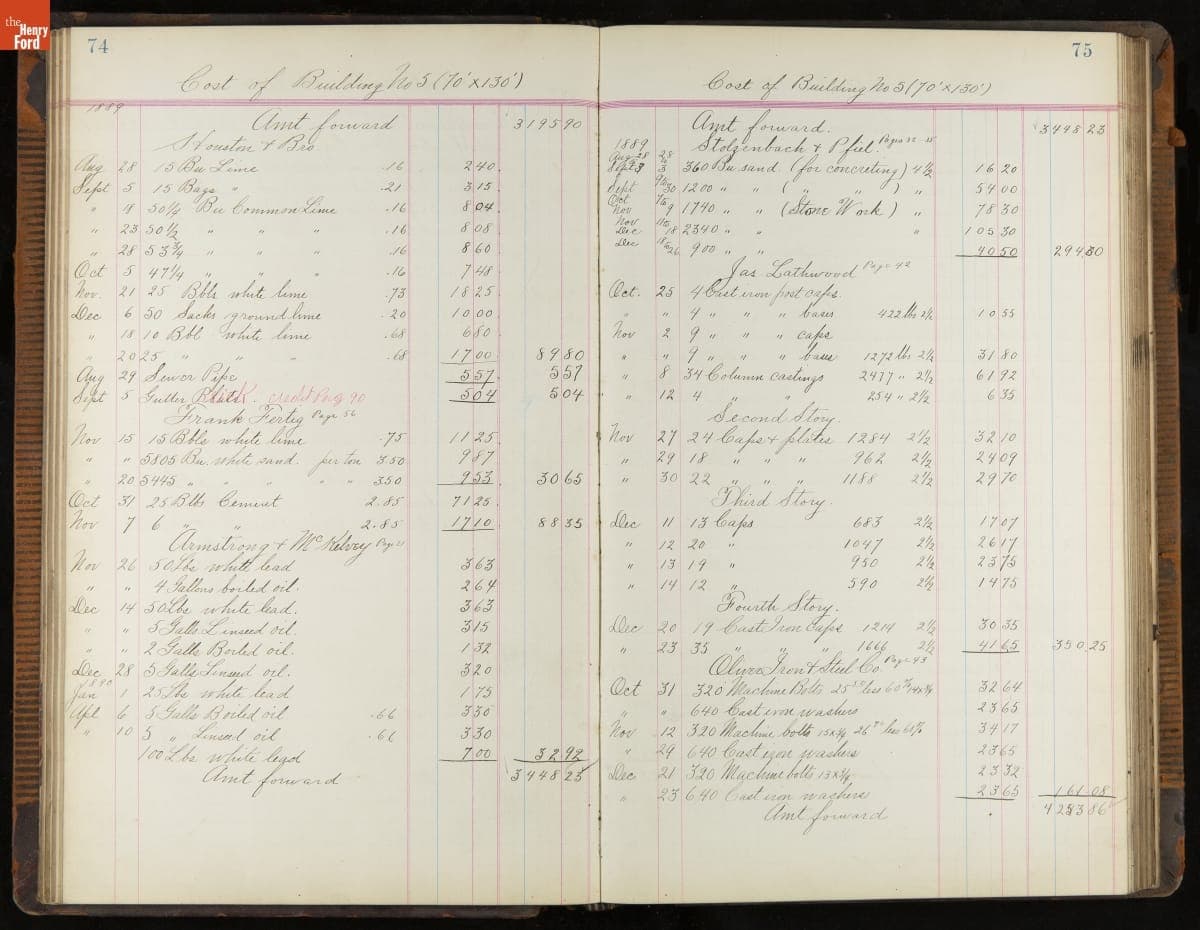 the Henry Ford
74
Cost of Building No 5 (70' x 130')
1889
Amt forward 3195 90
Houston & Bro
Aug 28 15 Bu Lime .16 2 40
Sept 5 15 Bags " .21 3 15
" 18 50 1/4 Bu Common Lime .16 8 04
" 23 50 1/2 " " " .16 8 08
" 28 53 3/4 " " " .16 8 60
Oct 5 47 1/4 " " " .16 7 48
Nov. 21 25 Bbls white lime .73 18 25
Dec 6 50 Sacks ground lime .20 10 00
" 18 10 Bbl white lime .68 6 80
" 20 25 " " " .68 17 00 89 80
Aug 29 Sewer Pipe 5 57 5 57
Sept 5 Gutter Brick. credit Page 90 5 04 5 04
Frank Fertig Page 56
Nov 15 15 Bbls white lime .75 11 25
" " 5805 Bu. white sand. per ton 3.50 9 87
" 20 5445 " " " " 350 9 53 30 65
Oct 31 25 Bbls Cement 2.85 71 25
Nov 7 6 " " 2.85 17 10 88 35
Armstrong & McKelvey Page 21
Nov 26 50 Lbs white lead 3 63
" " 4 Gallons boiled oil. 2 64
Dec 14 50 Lbs white lead. 3 63
" " 5 Galls Linseed oil. 3 15
" " 2 Galls Boiled oil. 1 32
Dec 28 5 Galls Linseed oil. 3 20
1890
Jan 1 25 Lbs white lead 1 75
Apl 6 5 Galls Boiled oil .66 3 30
" 10 5 " Linseed oil .66 3 30
100 Lbs white lead 7 00 32 92
Amt forward 3448 23
75
Cost of Building No 5 (70' x 130')
Amt forward. 3448 23
1889 Stolzenbach & Pfiel. Pages
Aug 28 28
Sept 3 3 360 Bu sand (for concreting) 4 1/2 16 20
Sept 30 1200 " " ( " " ) " 54 00
Oct
Nov 9 1740 " " (Stone Work) " 78 30
Nov
Dec 18 2340 " " " 105 30
Dec 26 900 " " 40 50 294 30
Jas Lathwood Page 42
Oct. 25 4 Cast iron post caps.
" " 4 " " " bases 422 lbs 2 1/2 10 55
Nov 2 9 " " " caps
" " 9 " " " bases 1272 lbs 2 1/2 31 80
" 8 34 Column castings 2477 " 2 1/2 61 92
" 12 4 " " 254 " 2 1/2 6 35
Second Story.
Nov 27 24 Caps & plates 1284 2 1/2 32 10
" 29 18 " " " 962 2 1/2 24 09
" 30 22 " " " 1188 2 1/2 29 70
Third Story.
Dec 11 13 Caps 683 2 1/2 17 07
" 12 20 " 1047 2 1/2 26 17
" 13 19 " 950 2 1/2 23 75
" 14 12 " 590 2 1/2 14 75
Fourth Story.
Dec 20 19 Cast Iron Caps 1214 2 1/2 30 35
" 23 35 " " " 1666 2 1/2 41 65 350 25
Oliver Iron & Steel Co Page 43
Oct 31 320 Machine Bolts 25 50 less 60% 14x3/4 32 64
" " 640 Cast iron washers 23 65
Nov 12 320 Machine bolts 15x3/4 less 34 17
" 29 640 Cast iron washers 23 65
Dec 21 320 Machine bolts 13x3/4 23 32
" 23 640 Cast iron washers 23 65 161 08
Amt forward 4253 86